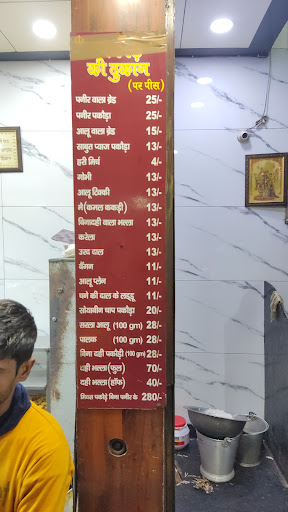 की दुकान
(पर पीस)
पनीर वाला ब्रेड 25/-
पनीर पकौड़ा 25/-
आलू वाला ब्रेड 15/-
साबुत प्याज पकौड़ा 13/-
हरी मिर्च 4/-
गोभी 13/-
आलू टिक्की 13/-
भें (कमल ककड़ी) 13/-
बिनादही वाला भल्ला 13/-
करेला 13/-
उरद दाल 13/-
बैंगन 11/-
आलू प्लेन 11/-
चने की दाल के लड्डू 11/-
सोयाबीन चाप पकौड़ा 20/-
आलू (100 gm) 28/-
पालक (100 gm) 28/-
बिना दही पकौड़ी (100 gm) 28/-
दही भल्ला (फुल) 70/-
दही भल्ला (हॉफ) 40/-
मिक्स पकौड़े बिना पनीर के 280/-